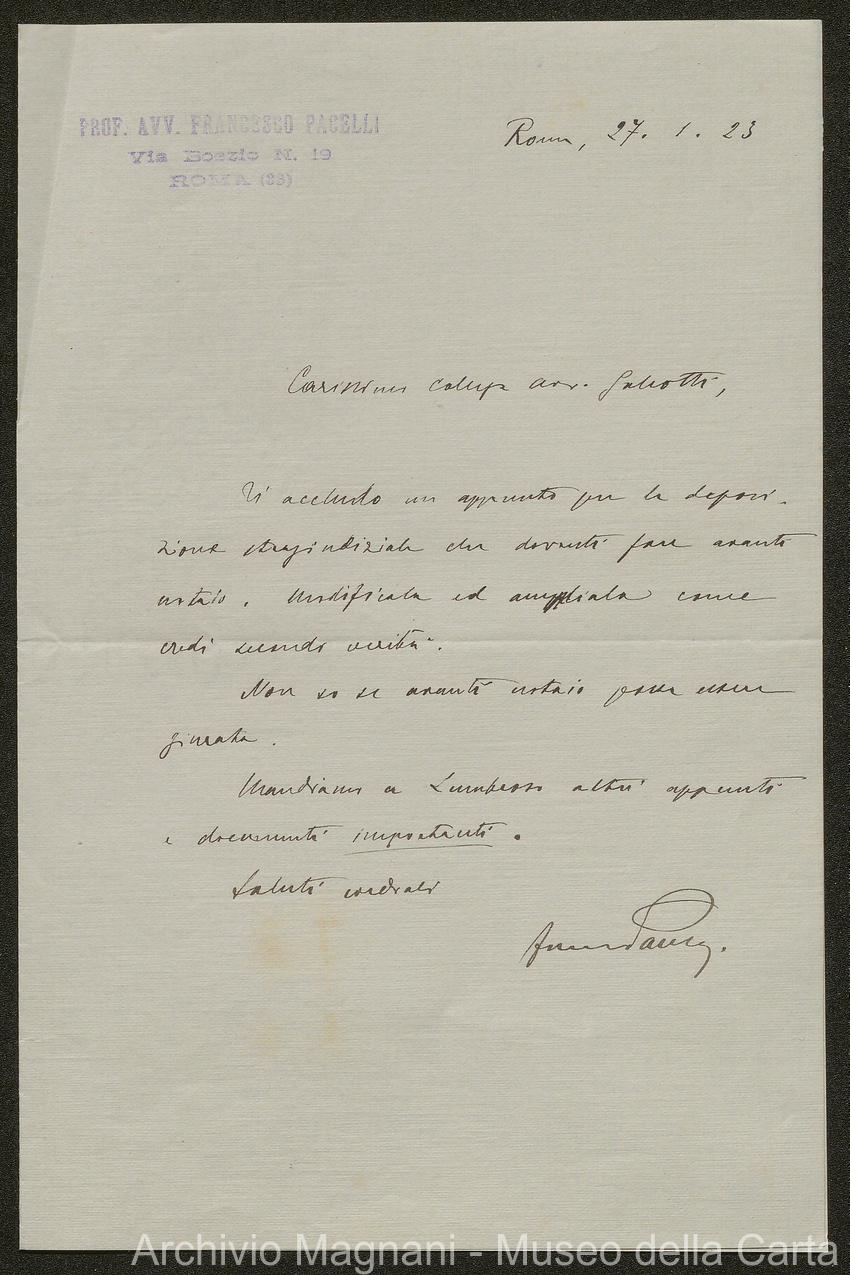 PROF. AVV. FRANCESCO PACELLI
Via Boezio N. 19
ROMA
Roma, 27. 1. 23
Carissimo collega avv. Galeotti,
Ti accludo un appunto per la deposi-
zione stragiudiziale che dovresti fare avanti
notaio. Modificala ed ampliala come
credi secondo verità.
Non so se avanti notaio possa essere
giurata.
Mandiamo a altri appunti
e documenti importanti.
Saluti cordiali
Pacelli.
Archivio Magnani - Museo della Carta